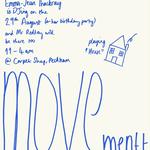 Emma-Jean Thackray
is DJing on the
29th August (@ her birthday party)
and Mr Redley will
be there too
19 - 4am
@ Carpet Shop, Peckham
playing
"House"
MOVE
mentt